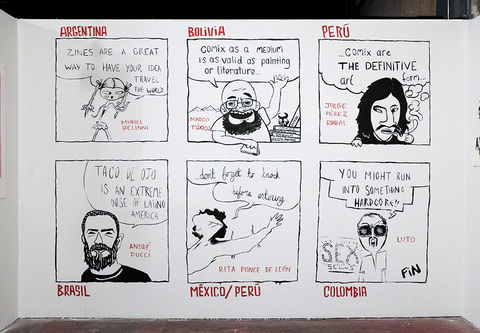 ARGENTINA
ZINES ARE A GREAT
WAY TO HAVE YOUR IDEA
TRAVEL
THE WORLD
MURIEL
BELLINI
BOLIVIA
Comix as a medium
is as valid as painting
or literature...
MARCO
TÓXICO
PERÚ
...Comix are
THE DEFINITIVE
art form...
JORGE
PÉREZ
RUIBAL
TACO DE OJO
IS AN EXTREME
DOSE OF LATINO
AMERICA
ANDRÉ
DUCCI
BRASIL
...don't forget to knock
before entering...
RITA PONCE DE LEÓN
MÉXICO/PERÚ
YOU MIGHT RUN
INTO SOMETHING
HARDCORE!!
SEX
SELLS
LUTO
FIN
COLOMBIA